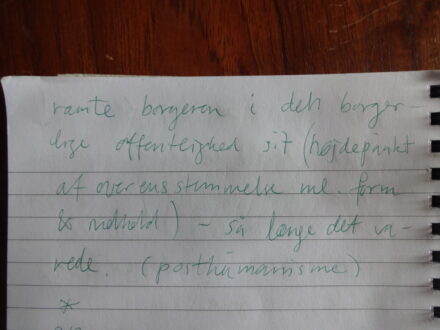 ramte borgeren i det borger-
lige offentlighed sit (højdepunkt
af overensstemmelse ml. form
& indhold) - så længe det va-
rede. (posthumanisme)
*